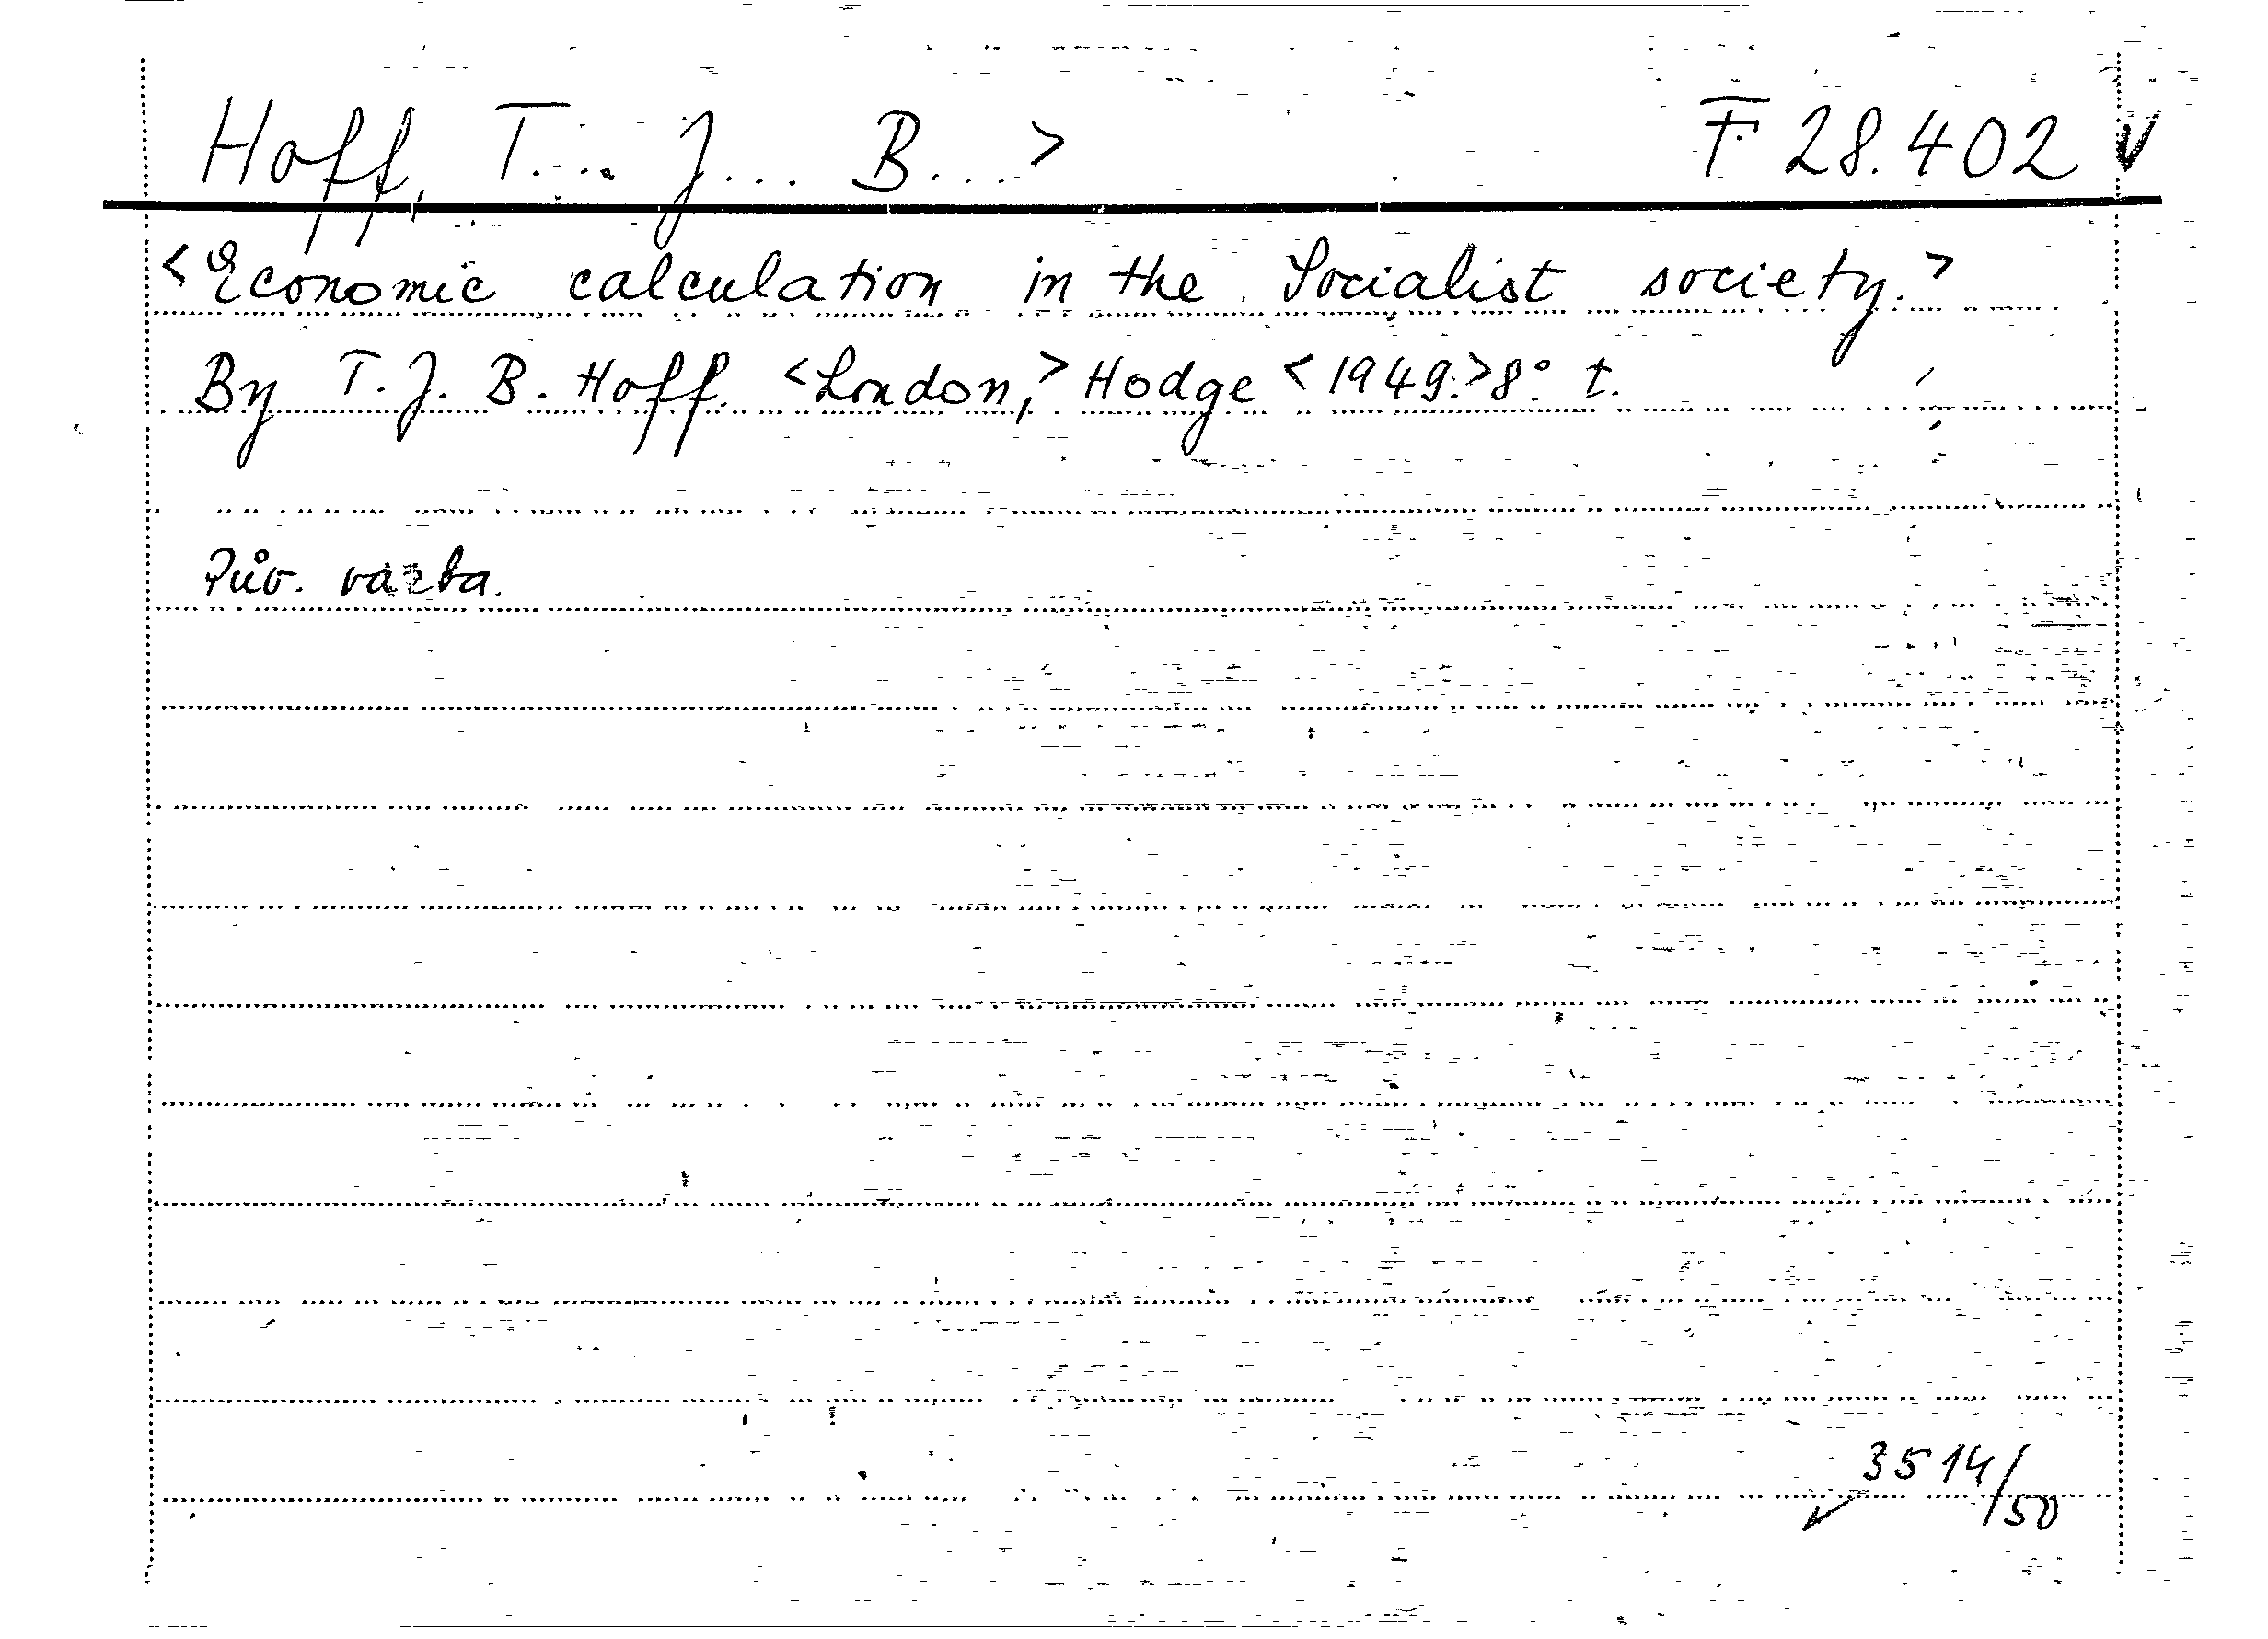 Hoff, T.... J... B...> F 28.402 V
<Economic calculation in the Socialist society.>
By T. J. B. Hoff. <London,> Hodge <1949.> 8° t.
Pův. vazba.
3514/50